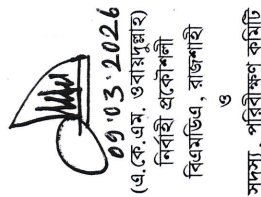 09.03.2026
(এ.কে.এম. ওবায়দুল্লাহ)
নির্বাহী প্রকৌশলী
বিএমডিএ, রাজশাহী
ও
সদস্য, পরিবীক্ষণ কমিটি